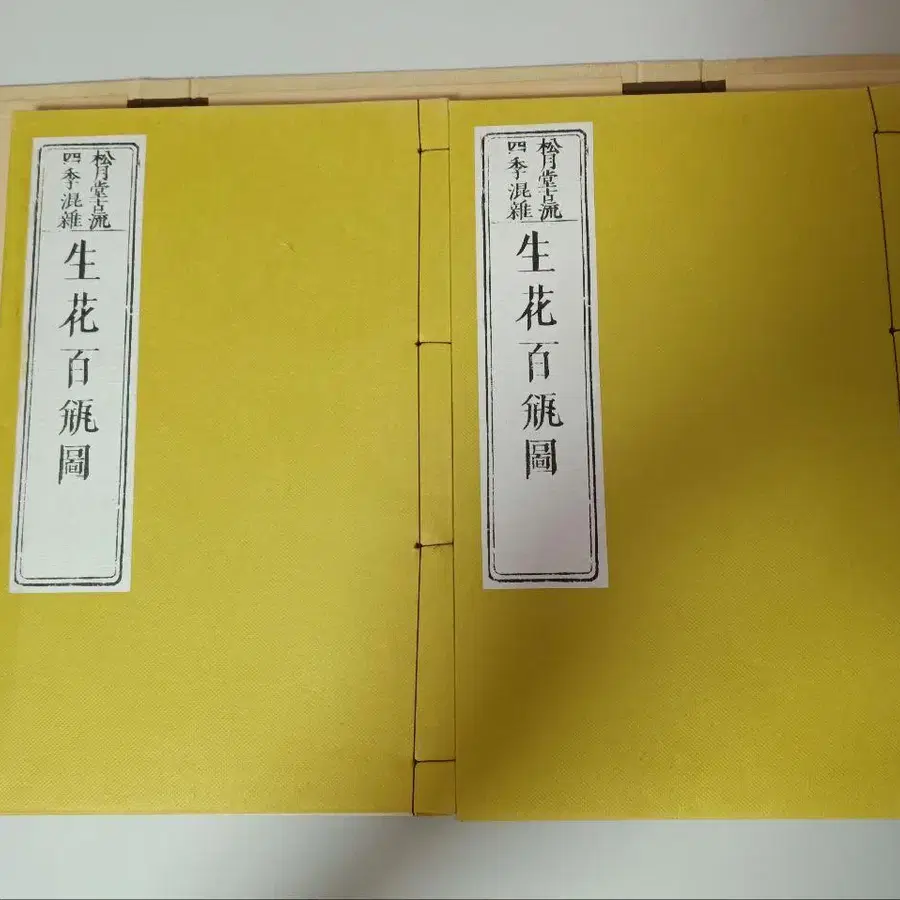 松月堂古流
四季混雑
生花百瓶圖
松月堂古流
四季混雑
生花百瓶圖